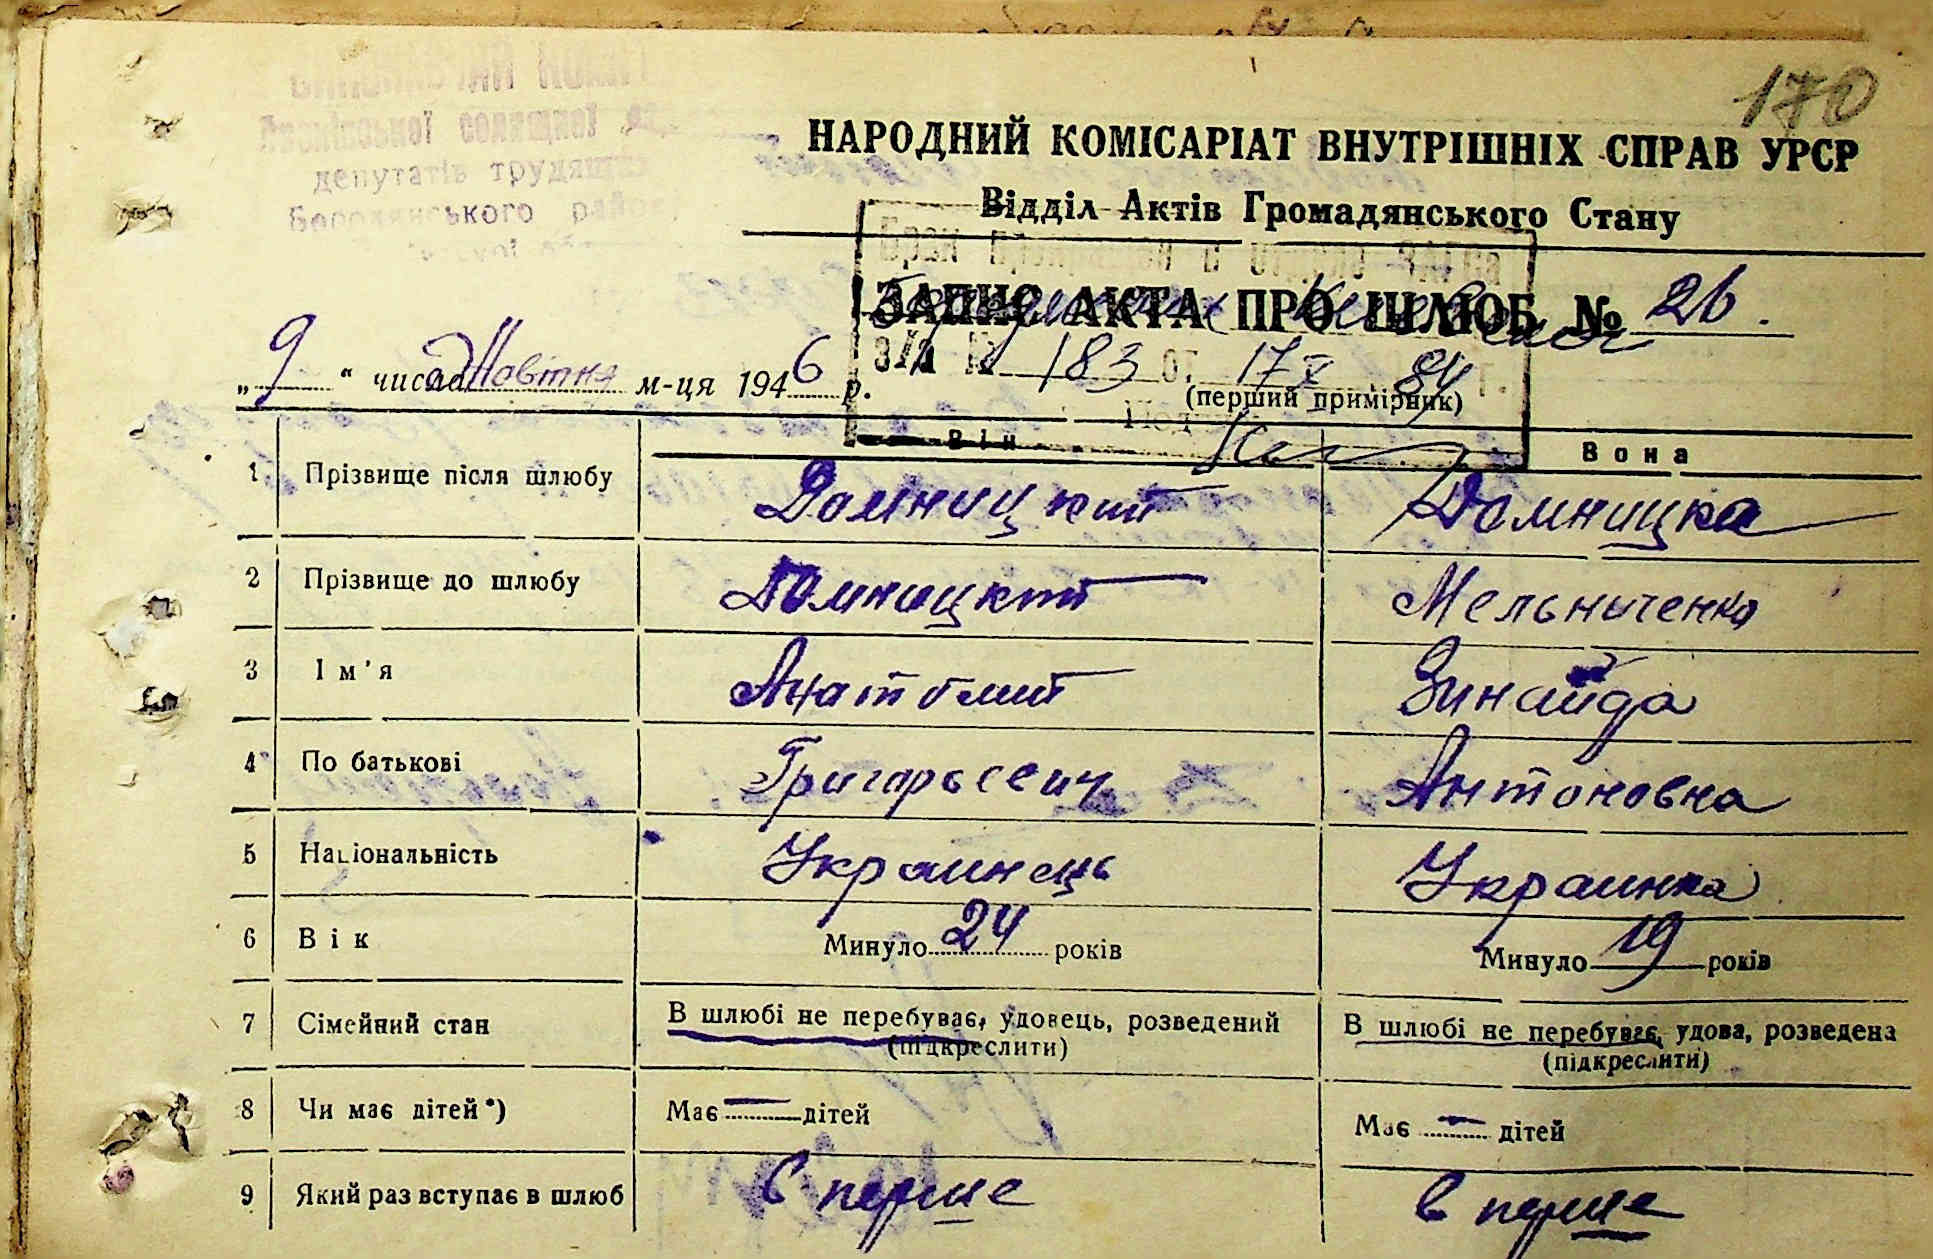 170
НАРОДНИЙ КОМІСАРІАТ ВНУТРІШНІХ СПРАВ УРСР
Відділ Актів Громадянського Стану
депутатів трудящих
Бородянського району
Брак прекращен в отделе ЗАГСа
ЗАПИС АКТА ПРО ШЛЮБ № 26.
з/а № 183 от 17 X 84 г.
„ 9 “ числа Жовтня м-ця 1946 р.
(перший примірник)
Він Вона
1 Прізвище після шлюбу Домницкий Домницка
2 Прізвище до шлюбу Домницкий Мельниченко
3 Ім'я Анатолий Зинаида
4 По батькові Григорьевич Антоновна
5 Національність Украинець Украинка
6 Вік Минуло 24 років Минуло 19 років
7 Сімейний стан В шлюбі не перебуває, удовець, розведений В шлюбі не перебуває, удова, розведена
(підкреслити) (підкреслити)
8 Чи має дітей*) Має — дітей Має — дітей
9 Який раз вступає в шлюб в перше в перше